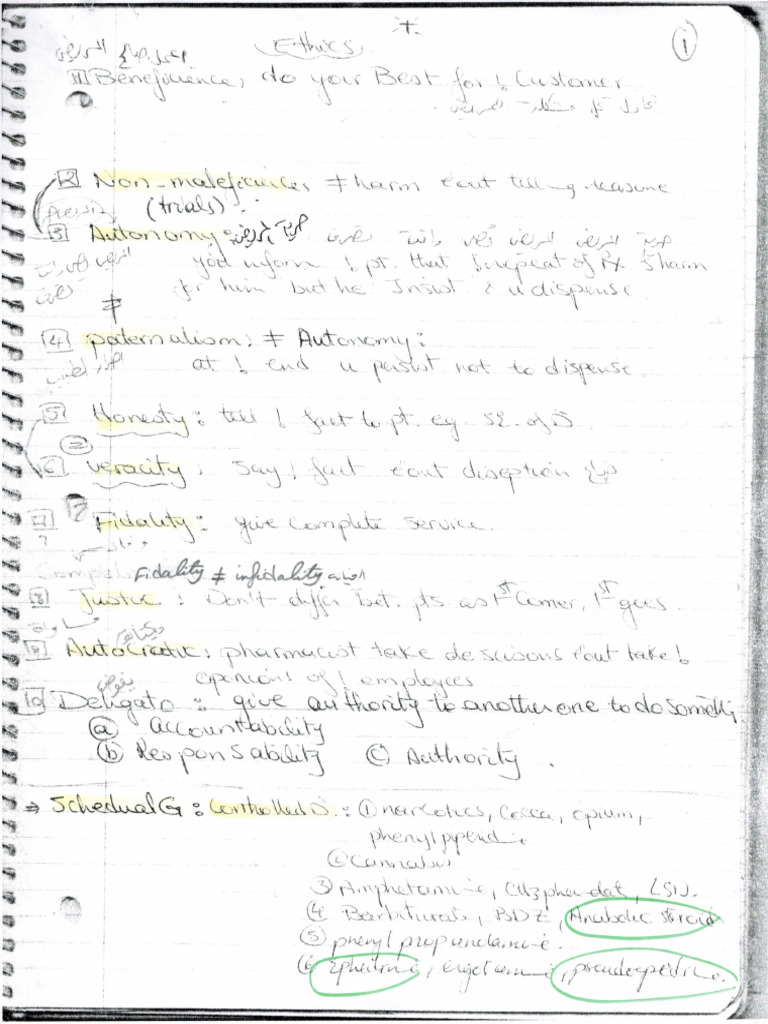 Ethics
1
اعمل صالح المريض
1 Beneficience, do your Best for ! Customer
2 Non-maleficiences ≠ harm c̄out telling reasone
(trials)
3 Autonomy: حرية المريض
you inform ! pt. that ! repeat of Rx is harm
for him but he Insist & u dispense
≠
4 paternalism: ≠ Autonomy:
at ! end u persist not to dispense.
5 Honesty: tell ! fact to pt. eg. S.E. of D
=
6 veracity: Say ! fact c̄out diseption
7 Fidality: give complete service.
Fidality ≠ infidality الخيانة
8 Justic: Don't differ bet. pts. as 1st Comer, 1st goes.
ديكتاتور
9 Autocratic: pharmacist take descisons c̄out take !
openions of ! employees
يفوض
10 Deligato: give authority to another one to do somethi.
a Accountability
b Responsability c Authority.
⇒ Schedual G: Controlled D.: 1 narcotics, Cocca, opium,
2 Cannabis
3 Amphetamine, LSD.
4 Barbiturats, BDZ, Anabolic steroid
5 phenyl propanolamine.
6 ephedrine, ergotamine, pseudoephedrine.